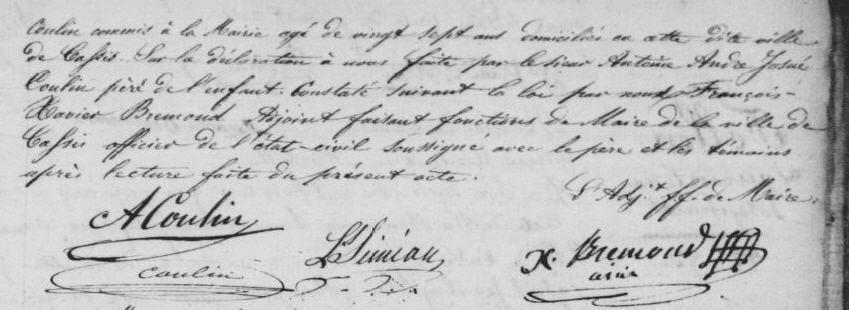 Coulin commis à la Mairie agé de vingt sept ans domiciliés en cette dite ville
de Cassis. Sur la déclaration à nous faite par le sieur Antoine André Josué
Coulin père de l'enfant. Constaté suivant la loi par nous François-
Xavier Bremond Adjoint faisant fonctions de Maire de la ville de
Cassis officier de l'état-civil soussigné avec le père et les témoins
après lecture faite du présent acte.
L'Adjt ff. de Maire.
ACoulin
X. Bremond
coulin